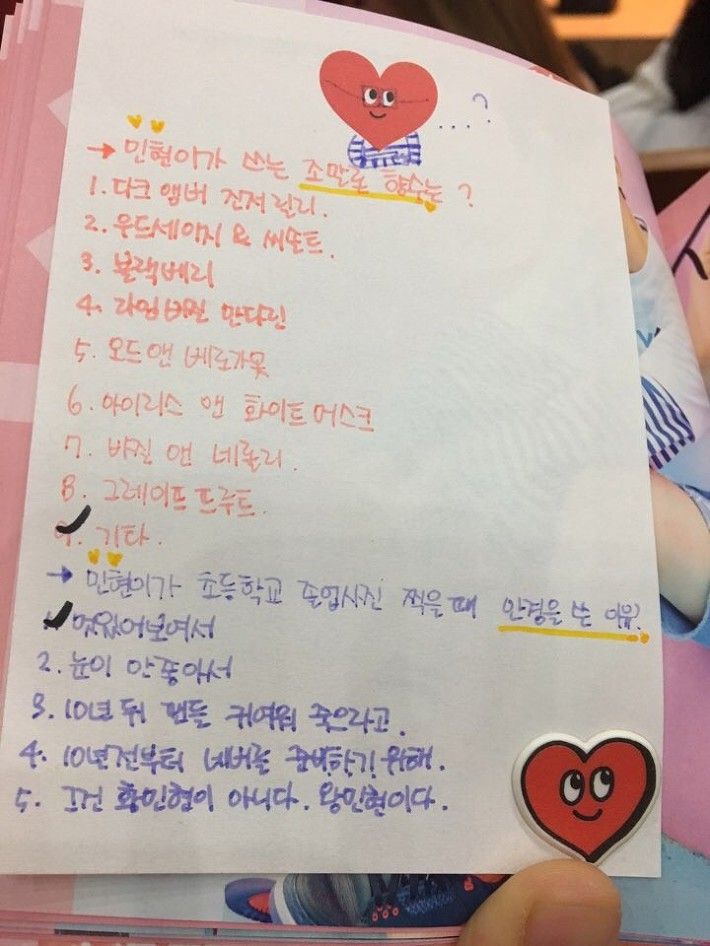 ....?
→ 민현이가 쓰는 조말론 향수는?
1. 다크 앰버 진저릴리.
2. 우드세이지 & 씨쏠트.
3. 블랙베리
4. 라임 바질 만다린
5. 오드 앤 베르가못
6. 아이리스 앤 화이트머스크
7. 바질 앤 네롤리.
8. 그레이프프루트.
9. 기타.
→ 민현이가 초등학교 졸업사진 찍을때 안경을 쓴 이유?
멋있어보여서
2. 눈이 안좋아서
3. 10년 뒤 팬들 귀여워 죽으라고.
4. 10년전부터 네버를 준비하기 위해.
5. 그건 황민현이 아니다. 왕민현이다.